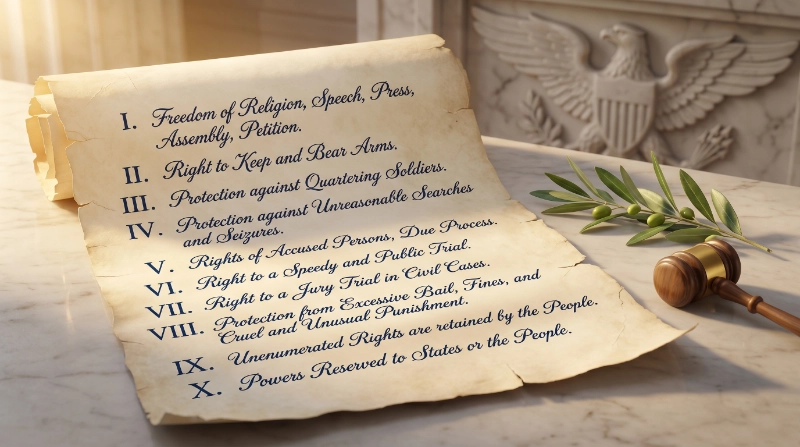 I. Freedom of Religion, Speech, Press,
Assembly, Petition.
II. Right to Keep and Bear Arms.
III. Protection against Quartering Soldiers.
IV. Protection against Unreasonable Searches
and Seizures.
V. Rights of Accused Persons, Due Process.
VI. Right to a Speedy and Public Trial.
VII. Right to a Jury Trial in Civil Cases.
VIII. Protection from Excessive Bail, Fines, and
Cruel and Unusual Punishment.
IX. Unenumerated Rights are retained by the People.
X. Powers Reserved to States or the People.